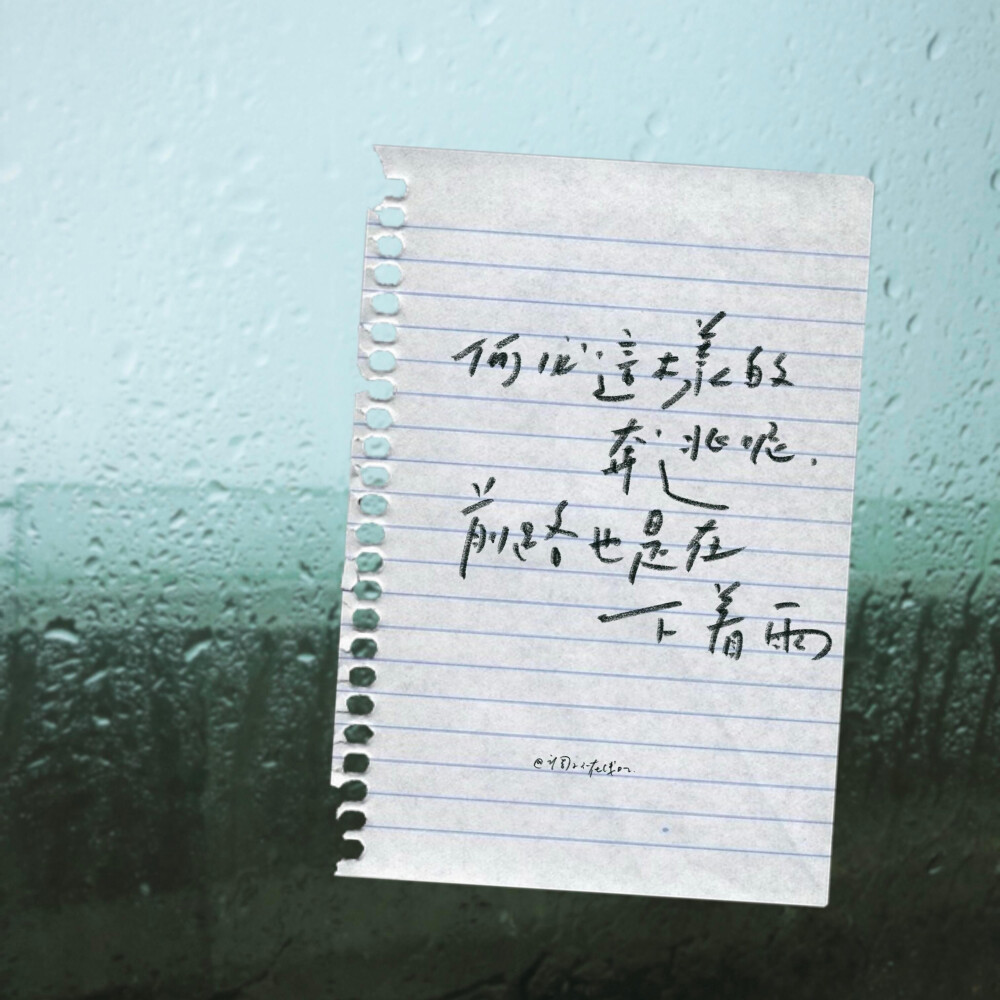 何必這樣的
奔逃呢.
前路也是在
下着雨